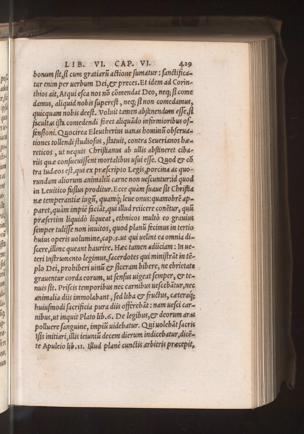 LIB. VI. CAP. VI. 429
bonum sit, si cum gratiarũ actione sumatur: sanctifica-
tur enim per uerbum Dei, & preces. Et idem ad Corin-
thios ait, Atqui esca nos nõ cõmendat Deo, neq; si come
damus, aliquid nobis superest, neq; si non comedamus,
quicquam nobis deest. Voluit tamen abstinendum esse, si
facultas ista comedendi fieret aliquãdo infirmioribus of-
fensioni. Quocirca Eleutherius uanas hominũ obserua-
tiones tollendi studiosus, statuit, contra Seuerianos hæ-
reticos, ut nequis Christianus ab ullis abstineret ciba-
riis quæ consueuissent mortalibus usui esse. Quod & cõ
tra Iudæos est, qui ex præscripto Legis, porcina ac quo-
rundam aliorum animaliũ carne non uescuntur: id quod
in Leuitico fusius proditur. Ecce quàm suaue sit Christia
næ temperantiæ iugũ, quamq; leue onus: quamobrẽ ap-
paret, quàm impie faciãt, qui illud reiicere conẽtur, quũ
præsertim liquidò liqueat, ethnicos multò eo grauius
semper tulisse non inuitos, quod planũ fecimus in tertio
huius operis uolumine, cap. 5. ut qui uelint ea omnia di-
scere, illinc queant haurire. Hæc tamen adiiciam: In ue-
teri instrumento legimus, sacerdotes qui ministrãt in tẽ-
plo Dei, prohiberi uinũ & siceram bibere, ne ebrietate
grauentur corda eorum, ut sensus uigeat semper, & te-
nuis sit. Priscis temporibus nec carnibus uescebãtur, nec
animalia diis immolabant, sed liba & fructus, cæteraq;
huiusmodi sacrificia pura diis offerebãt: nam uesci car-
nibus, ut inquit Plato lib. 6. De legibus, & deorum aras
polluere sanguine, impiũ uidebatur. Qui uolebãt sacris
Isis initiari, illis ieiunii decem dierum indicebatur, dicẽ-
te Apuleio lib. 11. Illud plane cunctis arbitris præcepit,